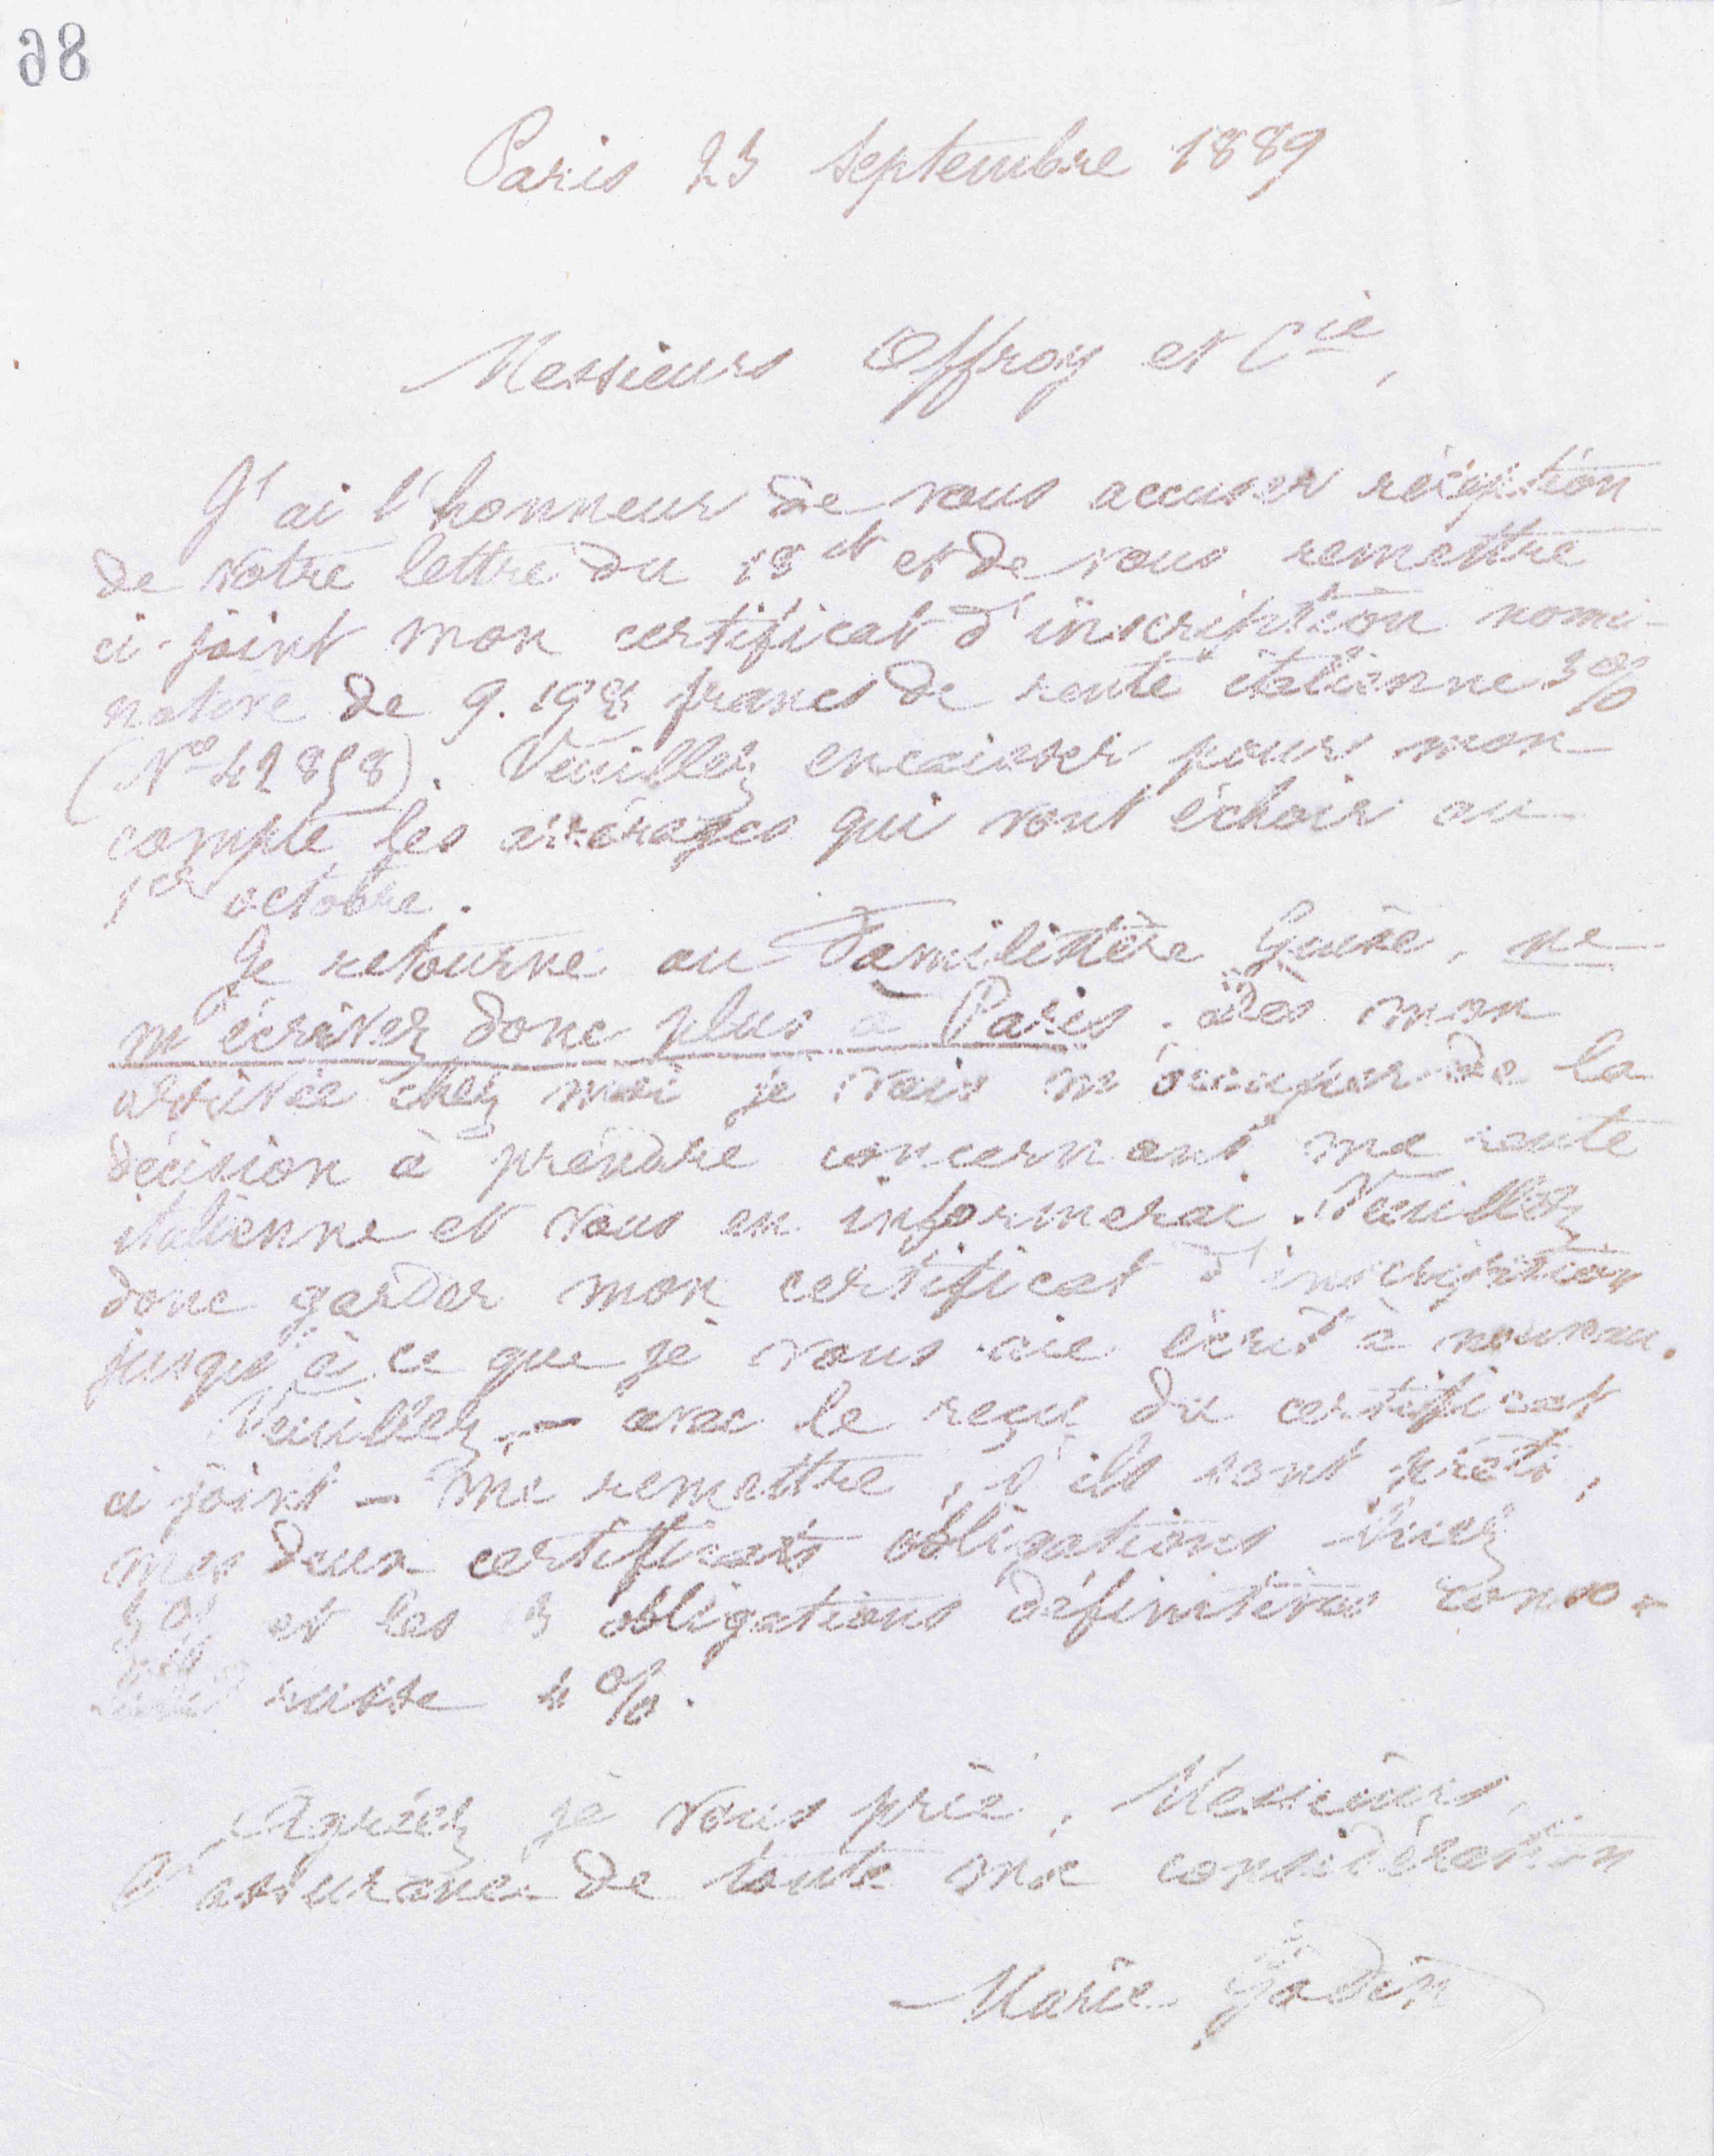 86
Paris 23 septembre 1889
Messieurs Offroy et Cie,
J'ai l'honneur de vous accuser réception
de votre lettre du 18 ct et de vous remettre
ci-joint mon certificat d'inscription nomi-
native de francs de rente italienne 3%
(No 42858). Veuillez encaisser pour mon
compte les arrérages qui vont échoir au
1er octobre.
Je retourne au Familistère Guise, ne
m'écrivez donc plus à Paris. Dès mon
arrivée chez moi je vais m'occuper de la
décision à prendre concernant ma rente
italienne et vous en informerai. Veuillez
donc garder mon certificat d'inscription
jusqu'à ce que je vous aie écrit à nouveau.
Veuillez, - avec le reçu du certificat
ci joint - me remettre, s'ils sont prêts,
mes deux certificats obligations Suez
3% et les 3 obligations définitives conso-
russe 4%.
Agréez je vous prie, Messieurs,
l'assurance de toute ma considération
Marie Godin